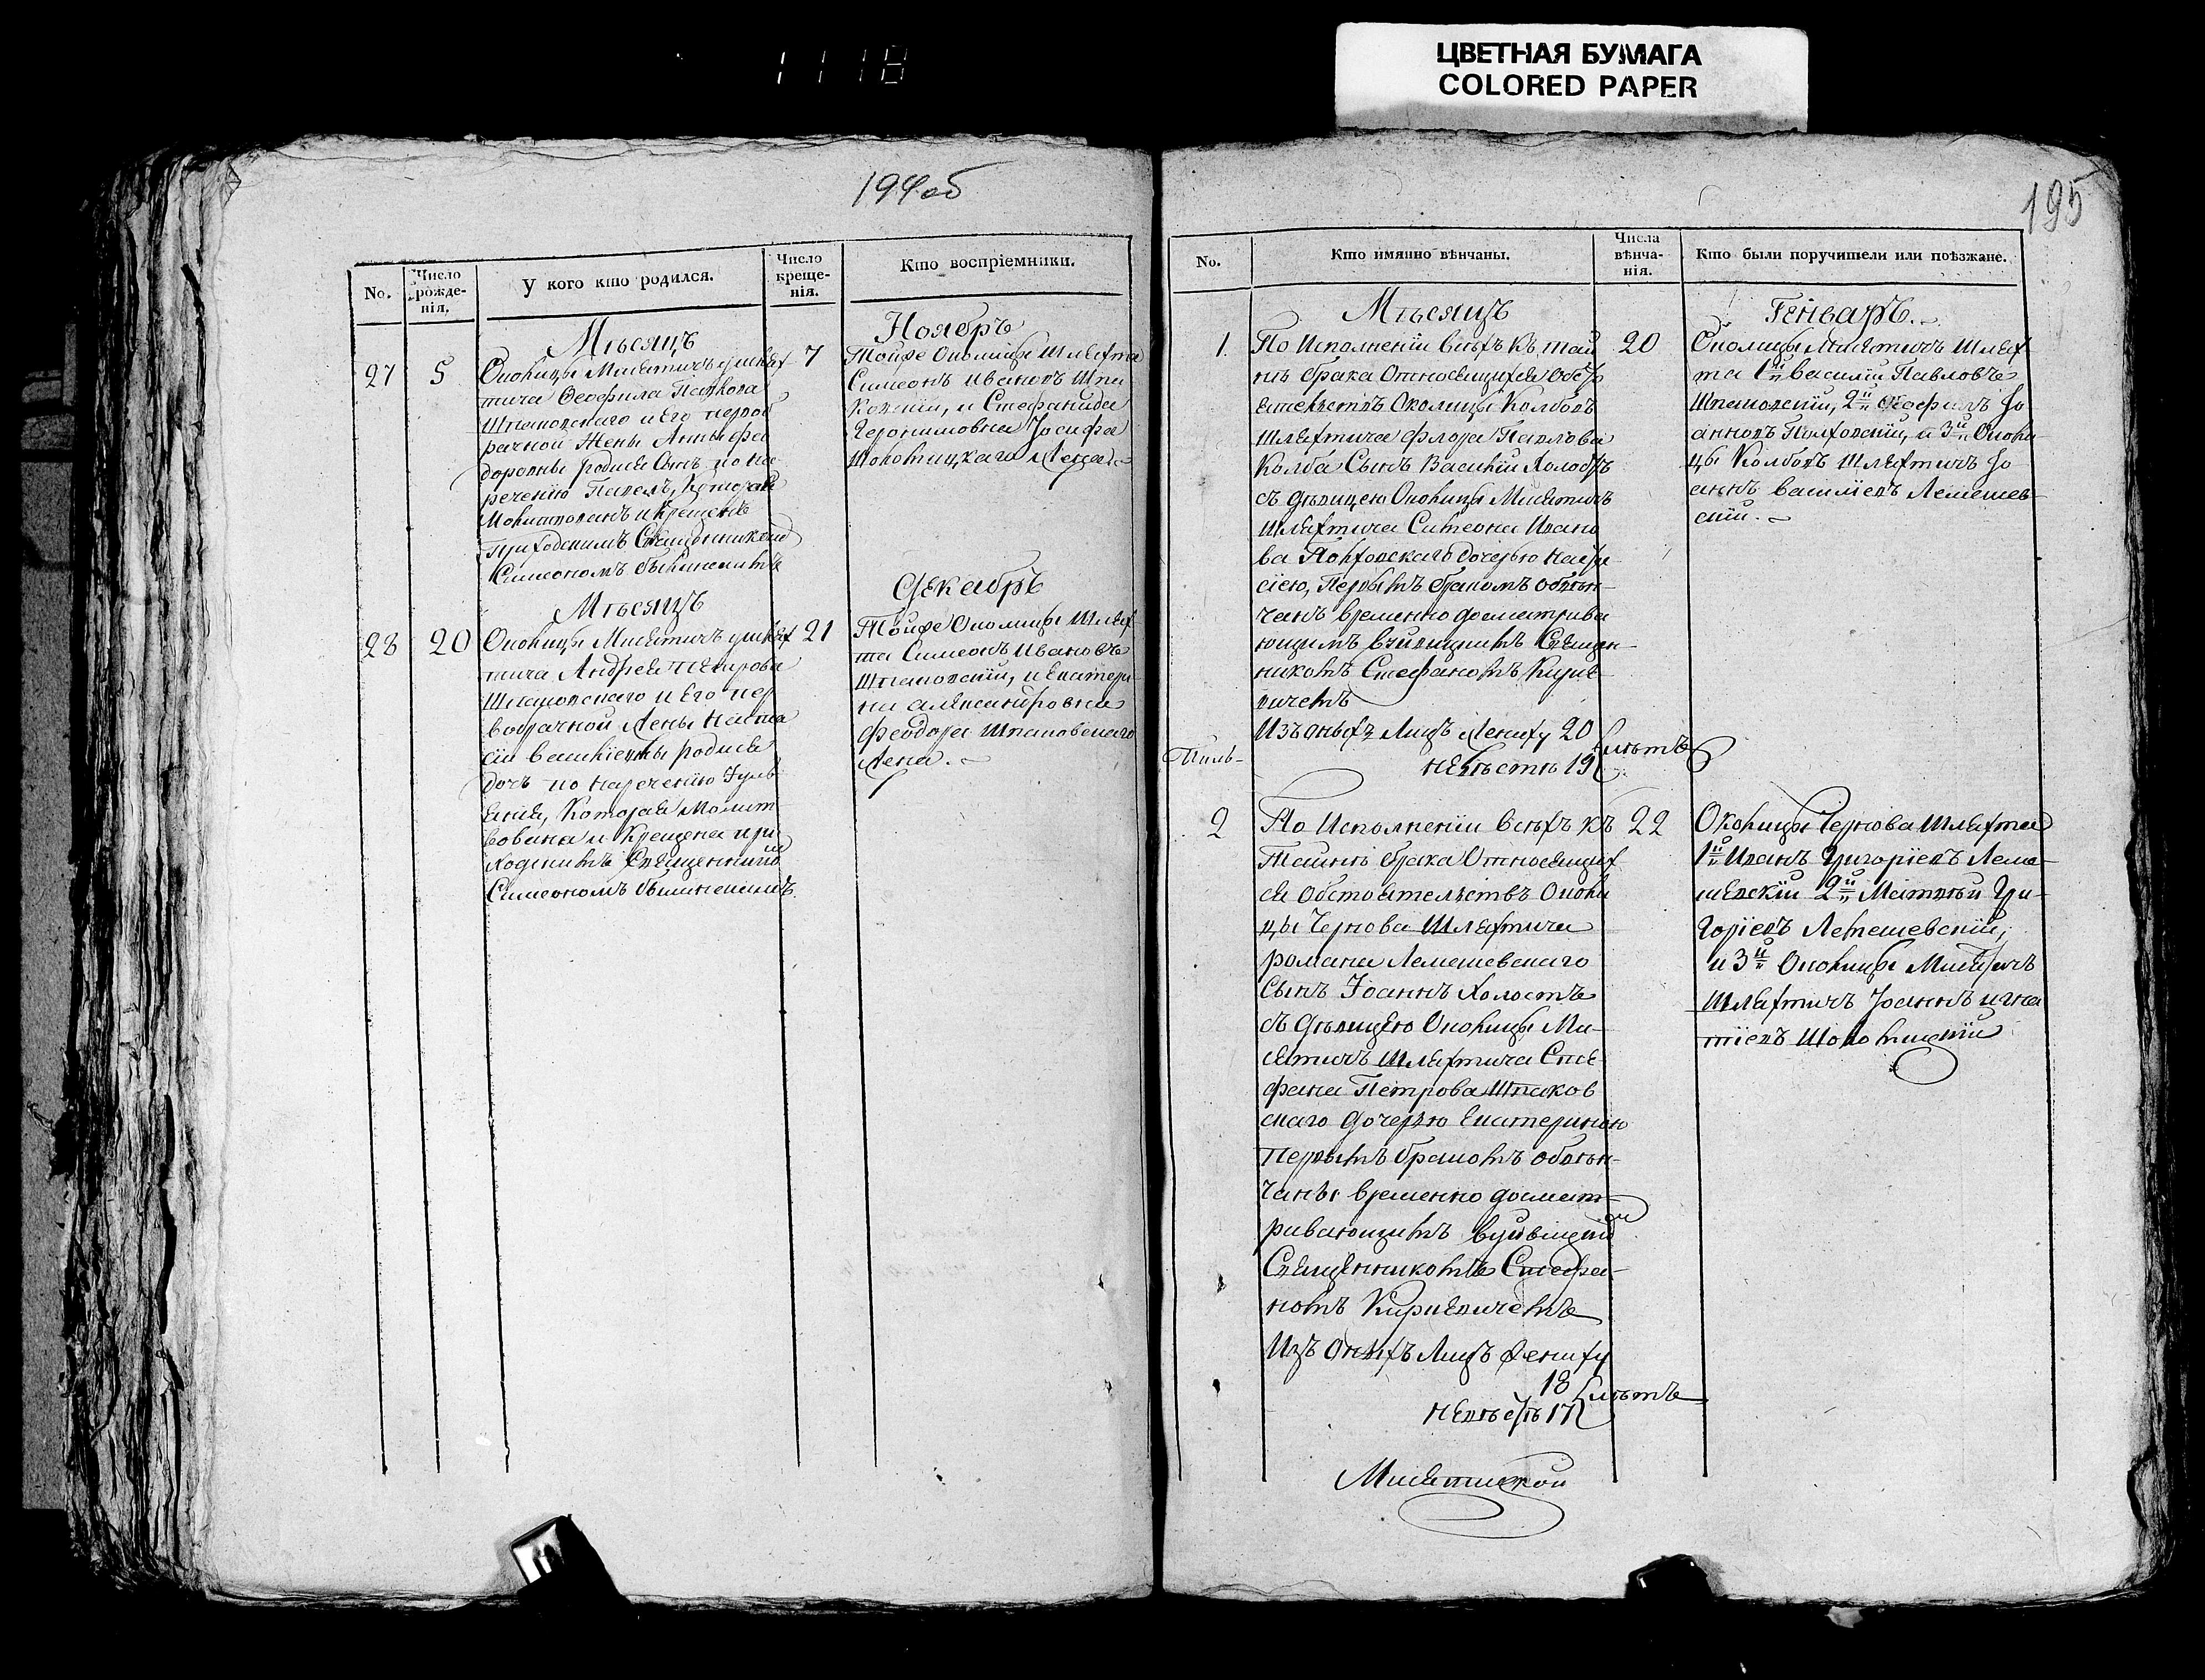 1118
ЦВЕТНАЯ БУМАГА
COLORED PAPER
194об
No.
Число рожде-нія,
У кого кто родился.
Число креще-нія.
Кто воспріемники.
Мѣсяцъ
Ноябръ
27
5
7
Околицы Мисятичъ шлях
тича Ѳеофила Павлова
Шпаковскаго и его перво
брачной жены Анны Фе
доровны родися сынъ по на
реченію Павелъ, который
молитвованъ и крещенъ
приходскимъ священникомъ
Симеономъ
Тойже околицы шляхта
Симеонъ Ивановъ Шпа
ковскій, и Стефанида
Геронимовна Іосифа
жена.
Мѣсяцъ
Декабръ
28
20
21
Околицы Мисятичъ шлях
тича Андрея Петрова
Шпаковскаго и его пер
вобрачной жены Наста
сіи Василіевны родися
дочъ по нареченію Іулі
анія, которая молит
вована и крещена при
ходскимъ священником
Симеономъ
Тойже околицы шлях
та Симеонъ Ивановъ
Шпаковскій, и Екатери
на Александровна
Феодора Шпаковскаго
жена.
195
No.
Кто имянно вѣнчаны.
Числа вѣнча-нія.
Кто были поручители или поѣзжане.
Мѣсяцъ
Генваръ.
1.
20
По исполненіи всѣхъ къ тай
нѣ брака относящихся обсто
ятелствъ околицы Колбовъ
шляхтича Флора Павлова
Колба сынъ Василій холостъ
съ дѣвицею околицы Мисятичъ
шляхтича Симеона Ивано
ва дочерью
первымъ бракомъ обвѣн
чанъ временно досматрива
ющимъ священ-
никомъ Стефаномъ Кирие
вичемъ
Изъ оныхъ лицъ жениху 20
невѣстѣ 19
лѣтъ
Околицы Мисятичъ шлях
та 1й Василій Павловъ
Шпаковскій, 2й Ѳеофилъ Іо
анновъ и 3й околи
цы Колбовъ шляхтичъ Іо
аннъ Василіевъ Лемешев-
скій.
2
22
По исполненіи всѣхъ къ
тайнѣ брака относящих
ся обстоятелствъ околи
цы Чернова шляхтича
Романа Лемешевскаго
сынъ Іоаннъ холостъ
съ дѣвицею околицы Ми-
сятичъ шляхтича Сте-
фана Петрова Шпаков
скаго дочерью Екатериною
первымъ бракомъ обвѣн-
чаны временно досмат-
ривающимъ
священникомъ Стефа-
номъ Кириевичемъ
Изъ оныхъ лицъ жениху
18
невѣстѣ 17
лѣтъ
Околицы Чернова шляхта
1й Иванъ Григоріевъ Леме-
шевскій 2й Матвѣй Гри-
горіевъ Лемешевскій,
и 3й околицы Мисятичъ
шляхтичъ Іоаннъ Игна
тіевъ
Мисятиской